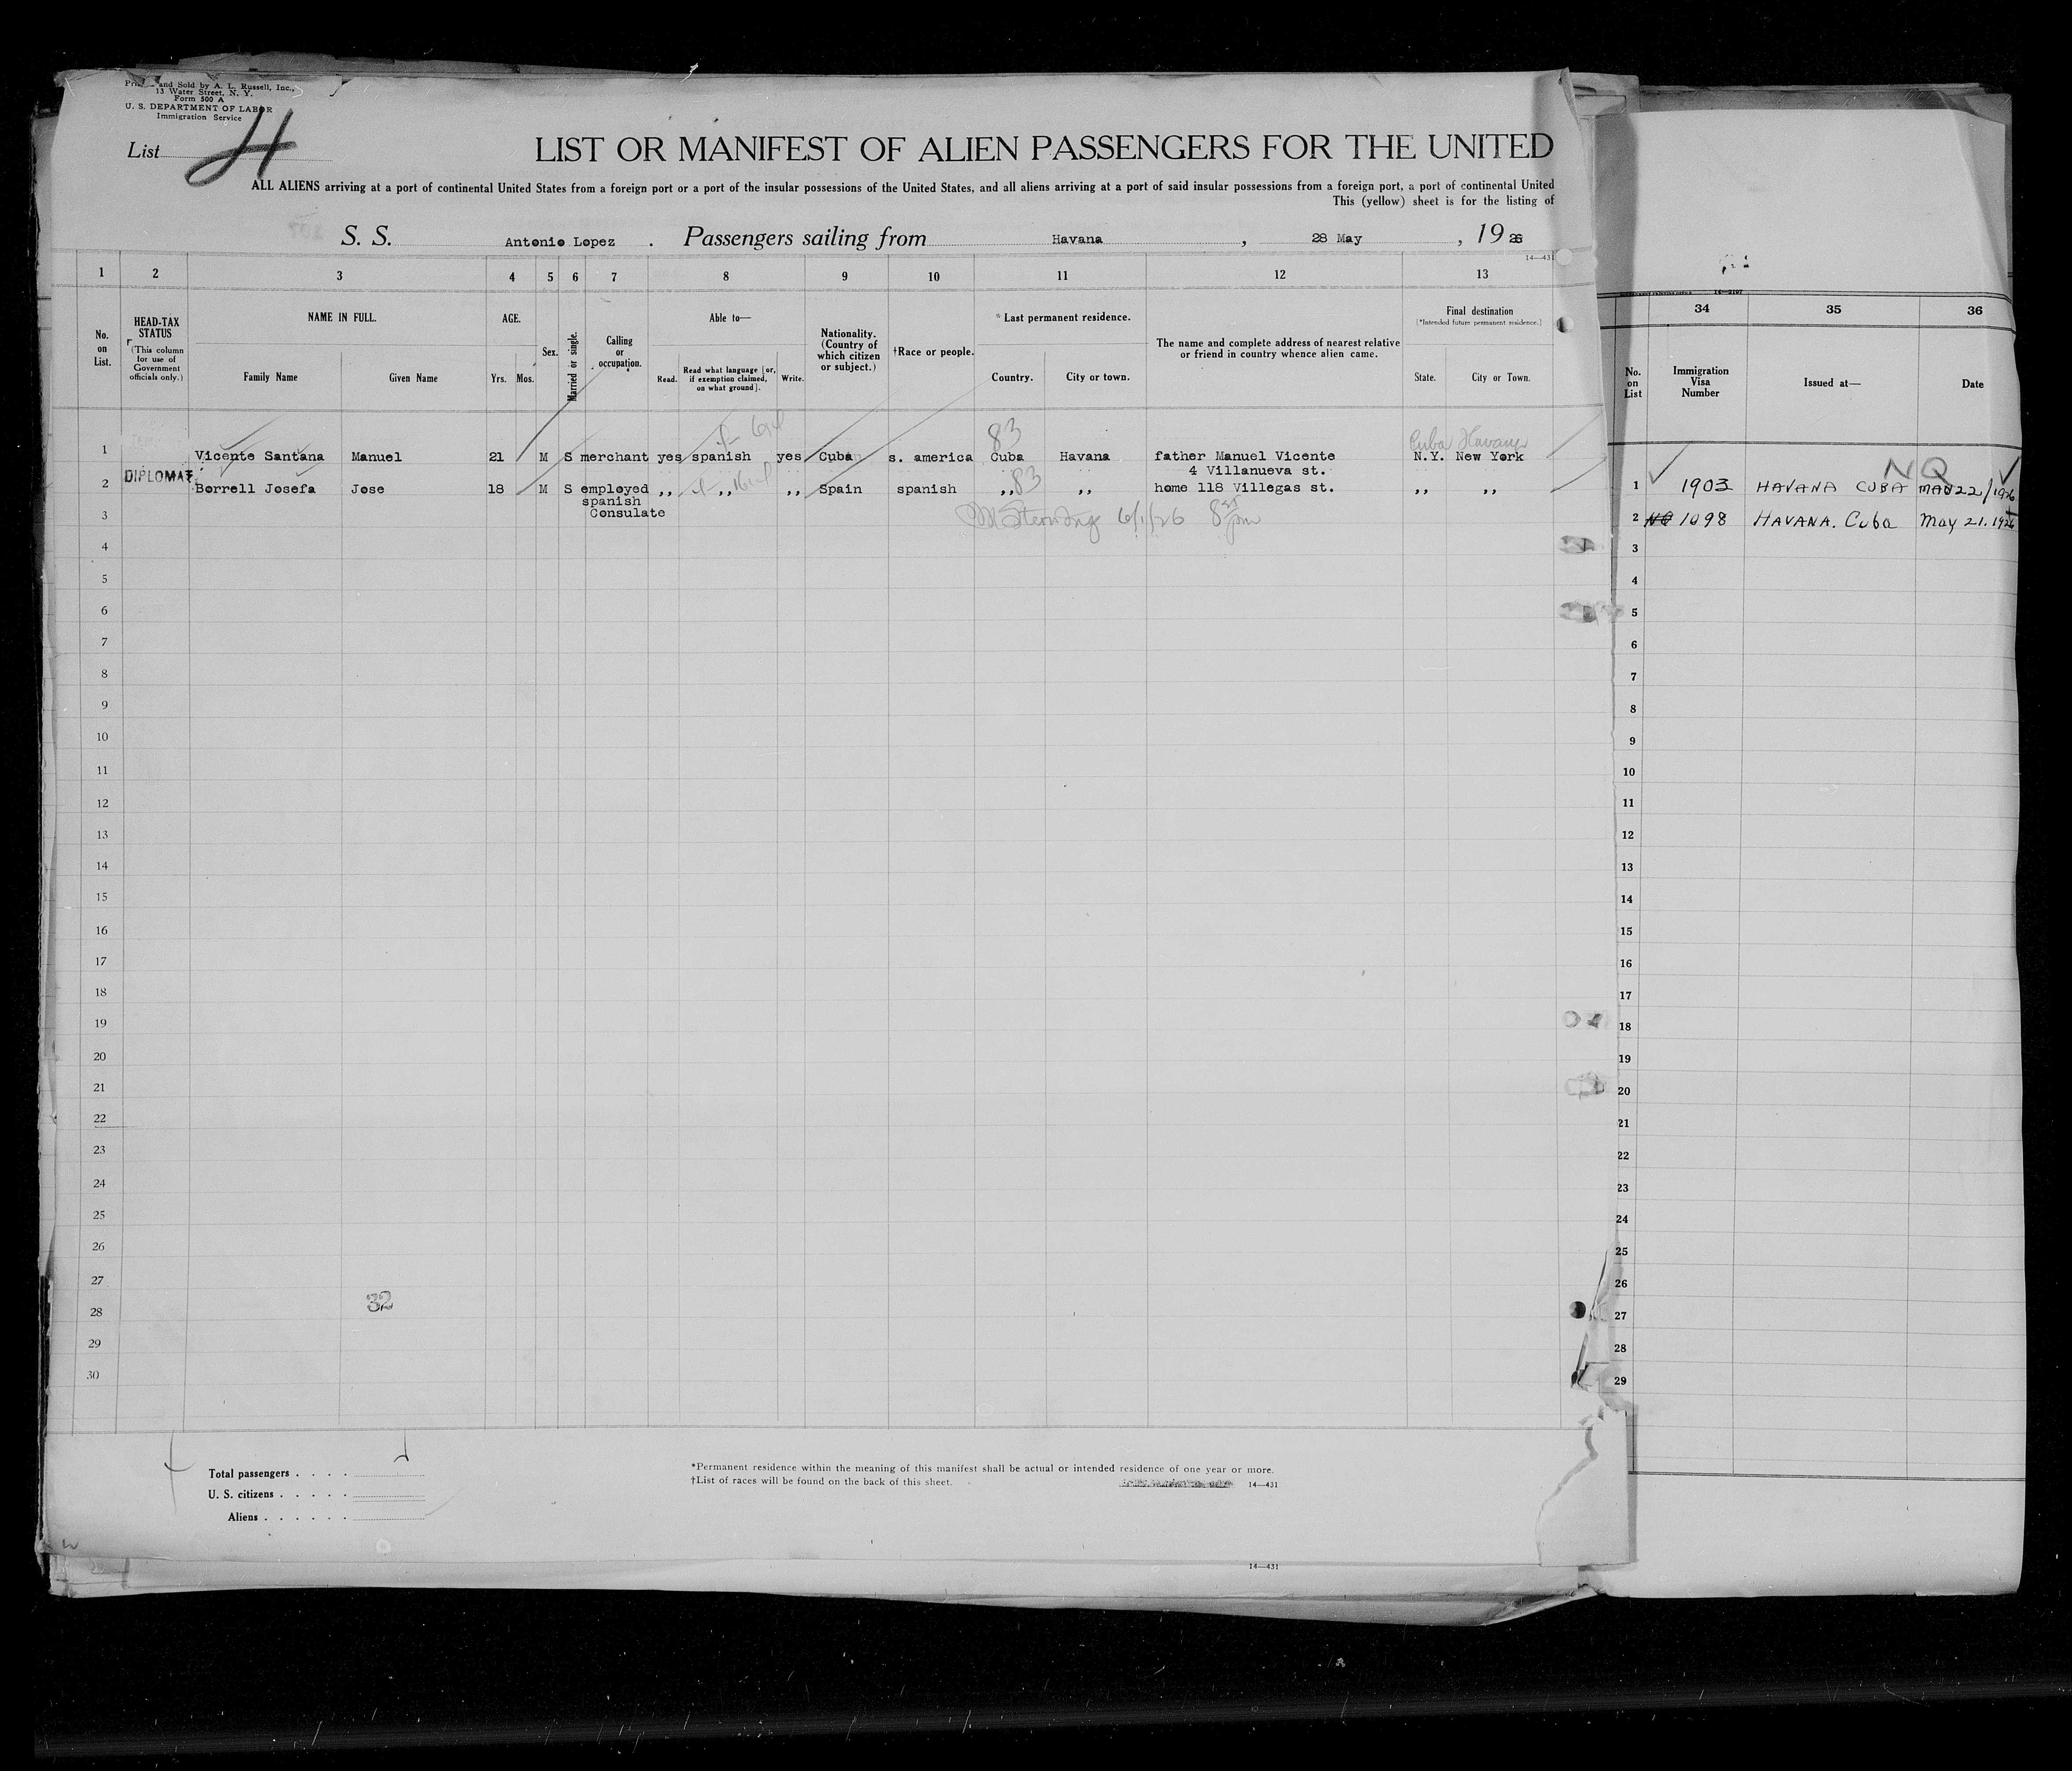 and Sold by A. L. Russell, Inc.,
13 Water Street, N. Y.
Form 500 A
U. S. DEPARTMENT OF LABOR
Immigration Service
List 4
LIST OR MANIFEST OF ALIEN PASSENGERS FOR THE UNITED
ALL ALIENS arriving at a port of continental United States from a foreign port or a port of the insular possessions of the United States, and all aliens arriving at a port of said insular possessions from a foreign port, a port of continental United
This (yellow) sheet is for the listing of
S. S. Antonio Lopez . Passengers sailing from Havana , 28 May , 19 26
14—431
1 2 3 4 5 6 7 8 9 10 11 12 13
No. on List.
HEAD-TAX STATUS (This column for use of Government officials only.)
NAME IN FULL.
Family Name Given Name
AGE.
Yrs. Mos.
Sex.
Married or single.
Calling or occupation.
Able to—
Read. Read what language [or, if exemption claimed, on what ground]. Write.
Nationality. (Country of which citizen or subject.)
†Race or people.
* Last permanent residence.
Country. City or town.
The name and complete address of nearest relative or friend in country whence alien came.
Final destination
[*Intended future permanent residence.]
State. City or Town.
34 35 36
No. on List
Immigration Visa Number
Issued at—
Date
83 Cuba Havana
1 Vicente Santana Manuel 21 M S merchant yes spanish yes Cuba s. america Cuba Havana father Manuel Vicente N.Y. New York
4 Villanueva st.
DIPLOMAT
83
2 Borrell Josefa Jose 18 M S employed ,, ,, ,, Spain spanish ,, ,, home 118 Villegas st. ,, ,,
spanish
3 Consulate
6/1/26 8 pm
4
5
6
7
8
9
10
11
12
13
14
15
16
17
18
19
20
21
22
23
24
25
26
27
32
28
29
30
NQ
1 1903 HAVANA CUBA 22/1926
2 1098 HAVANA. Cuba May 21. 1926
3
4
5
6
7
8
9
10
11
12
13
14
15
16
17
18
19
20
21
22
23
24
25
26
27
28
29
Total passengers . . . .
U. S. citizens . . . . .
Aliens . . . . . .
*Permanent residence within the meaning of this manifest shall be actual or intended residence of one year or more.
†List of races will be found on the back of this sheet.
14—431
14—431